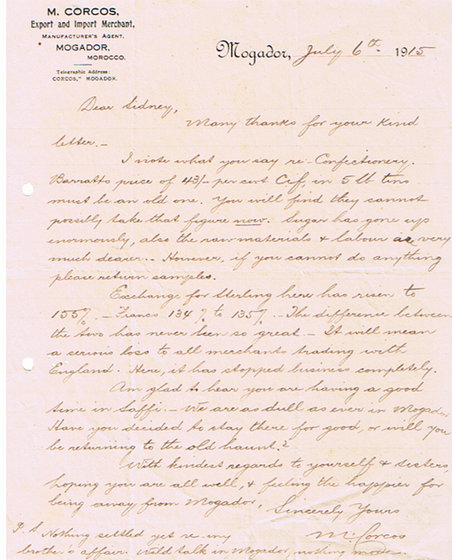 M. CORCOS,
Export and Import Merchant,
MANUFACTURER'S AGENT,
MOGADOR,
MOROCCO.
Telegraphic Address:
CORCOS," MOGADOR.
Mogador, July 6th 1915
Dear Sidney,
Many thanks for your kind
letter. -
I note what you say re - Confectionery.
Barratts price of 43/- per cwt Cif, in 5 lb tins
must be an old one. You will find they cannot
possibly take that figure now. Sugar has gone up
enormously, also the raw materials & labour are very
much dearer. - However, if you cannot do anything
please return samples.
Exchange for Sterling here has risen to
155%. - Francs 134% to 135%. - The difference between
the two has never been so great. - It will mean
a serious loss to all merchants trading with
England. Here, it has stopped business completely.
Am glad to hear you are having a good
time in Saffi. - We are as dull as ever in Mogador
Have you decided to stay there for good, or will you
be returning to the old haunt?
With kindest regards to yourself & sisters,
hoping you are all well, & feeling the happier for
being away from Mogador,
Sincerely Yours
M. Corcos
P.S. Nothing settled yet re - my
brother's affair. talk in Mogador, nothing more